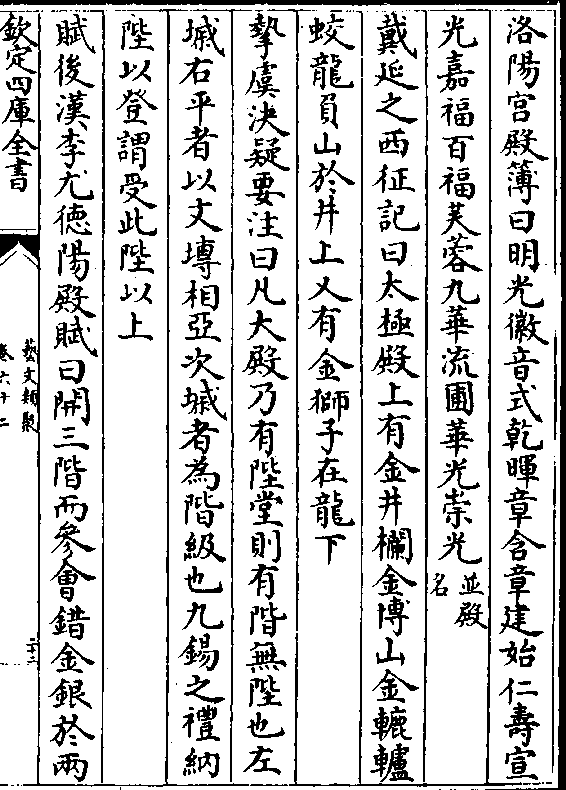 洛陽宮殿簿曰明光徽音式乾暉章含章建始仁壽宣
光嘉福百福芙蓉九華流圃華光崇光並殿名
戴延之西征記曰太極殿上有金井欄金博山金轆轤
蛟龍負山於井上又有金獅子在龍下
摯虞決疑要注曰凡大殿乃有陛堂則有階無陛也左
墄右平者以文塼相亞次墄者為階級也九錫之禮納
陛以登謂受此陛以上
賦後漢李尤德陽殿賦曰開三階而參會錯金銀於兩
欽定四庫全書
藝文類聚
卷六十二